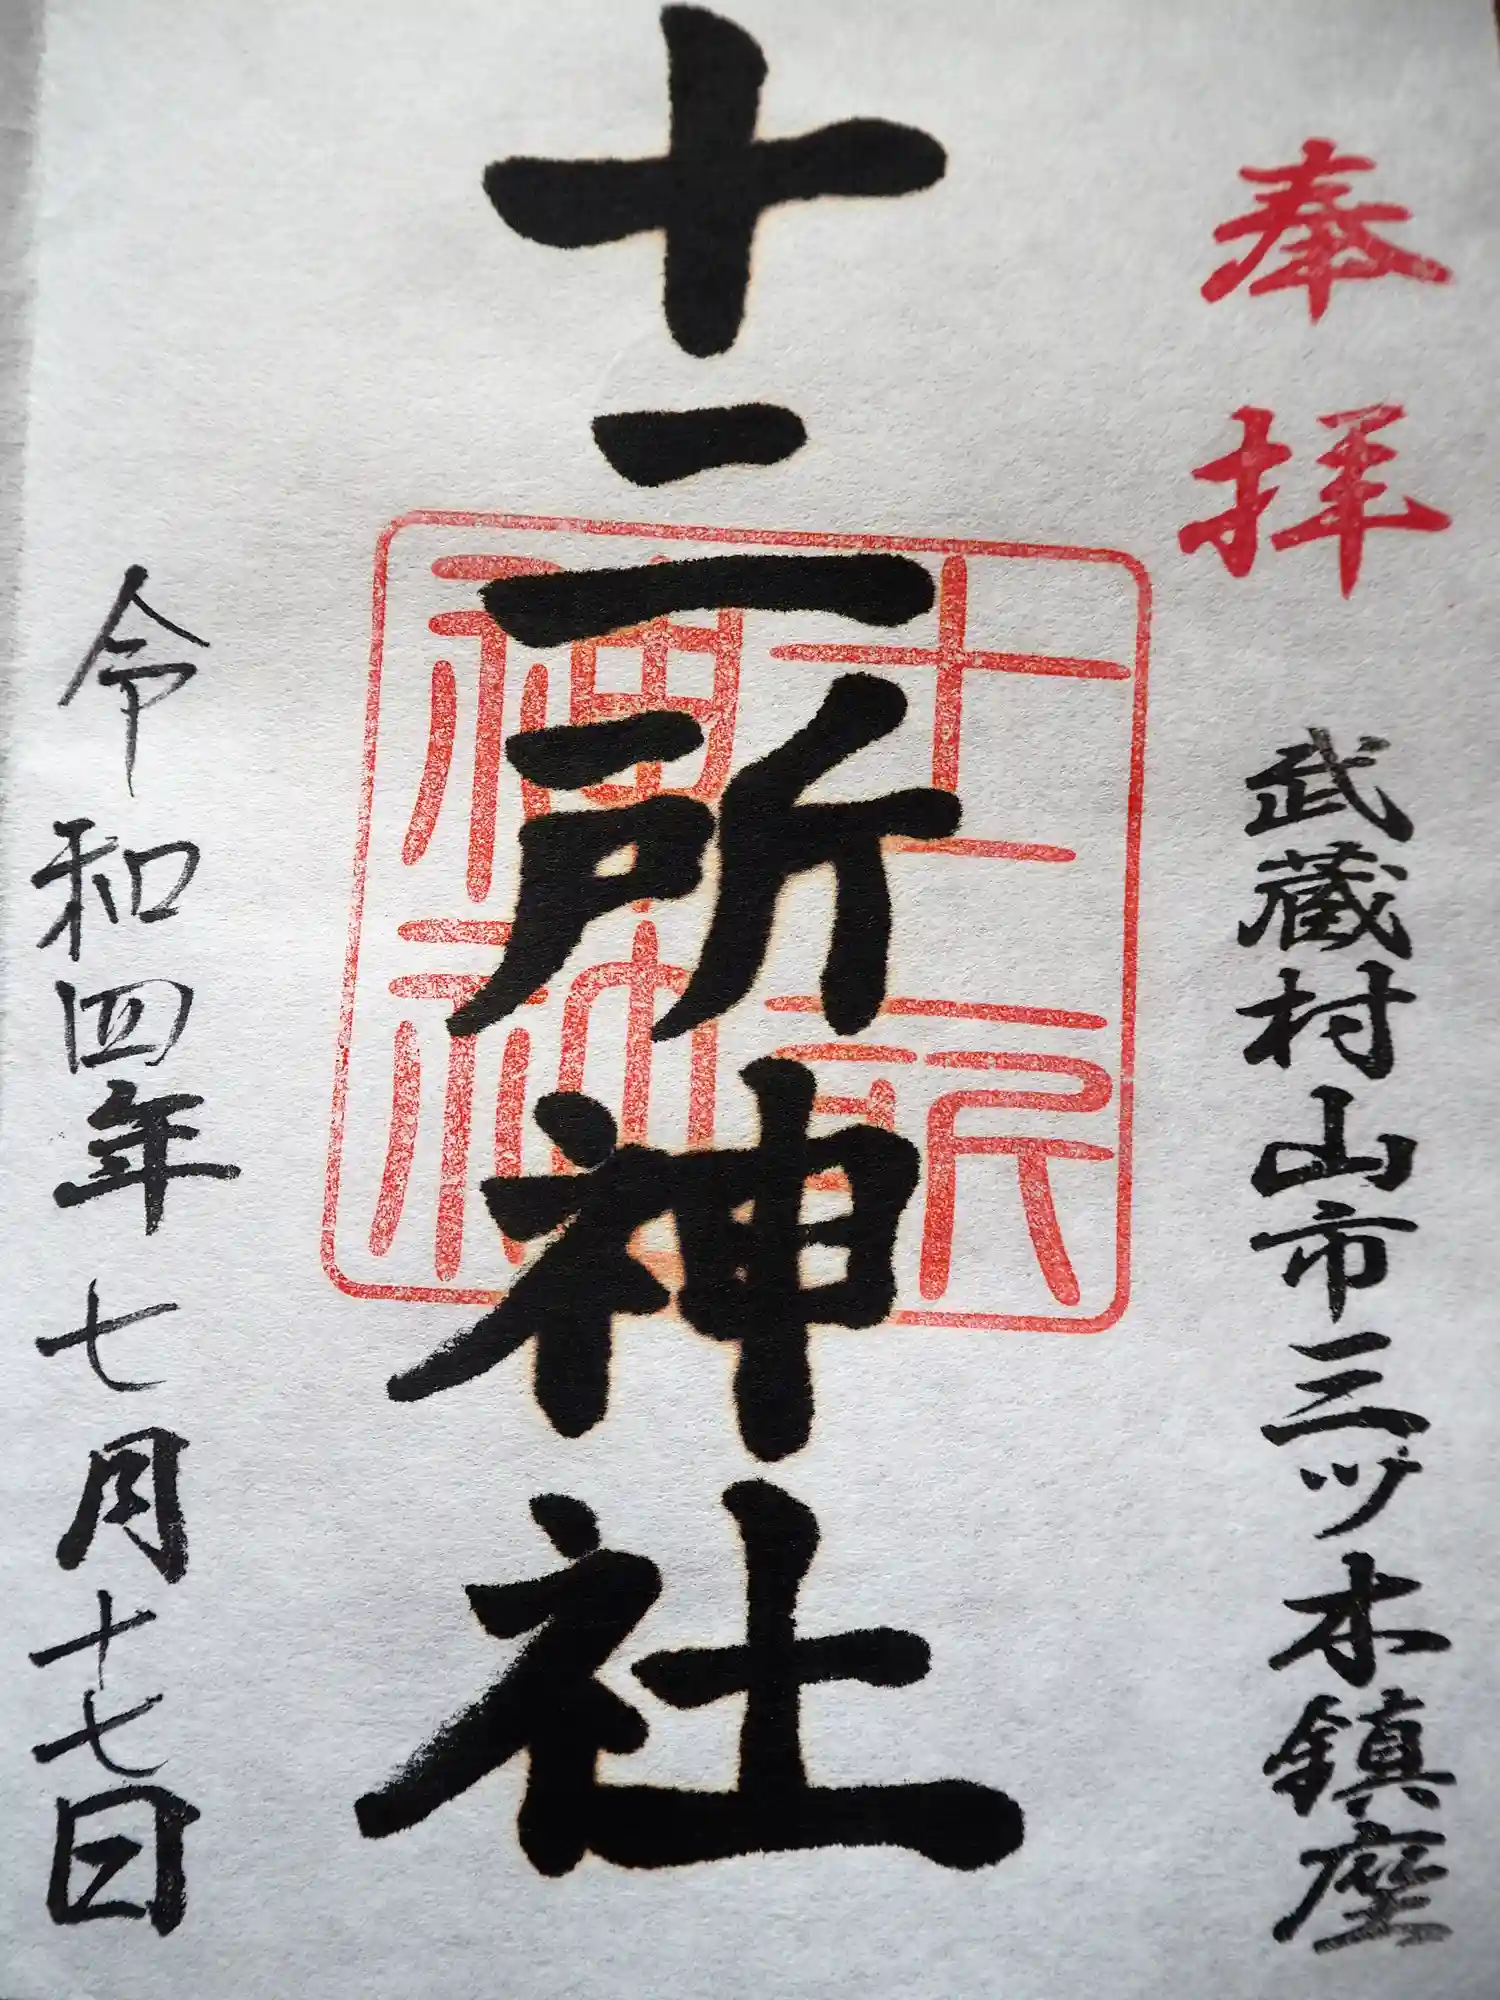 奉拝
武蔵村山市三ツ木鎮座
十二所神社
十二所神社
令和四年七月十七日